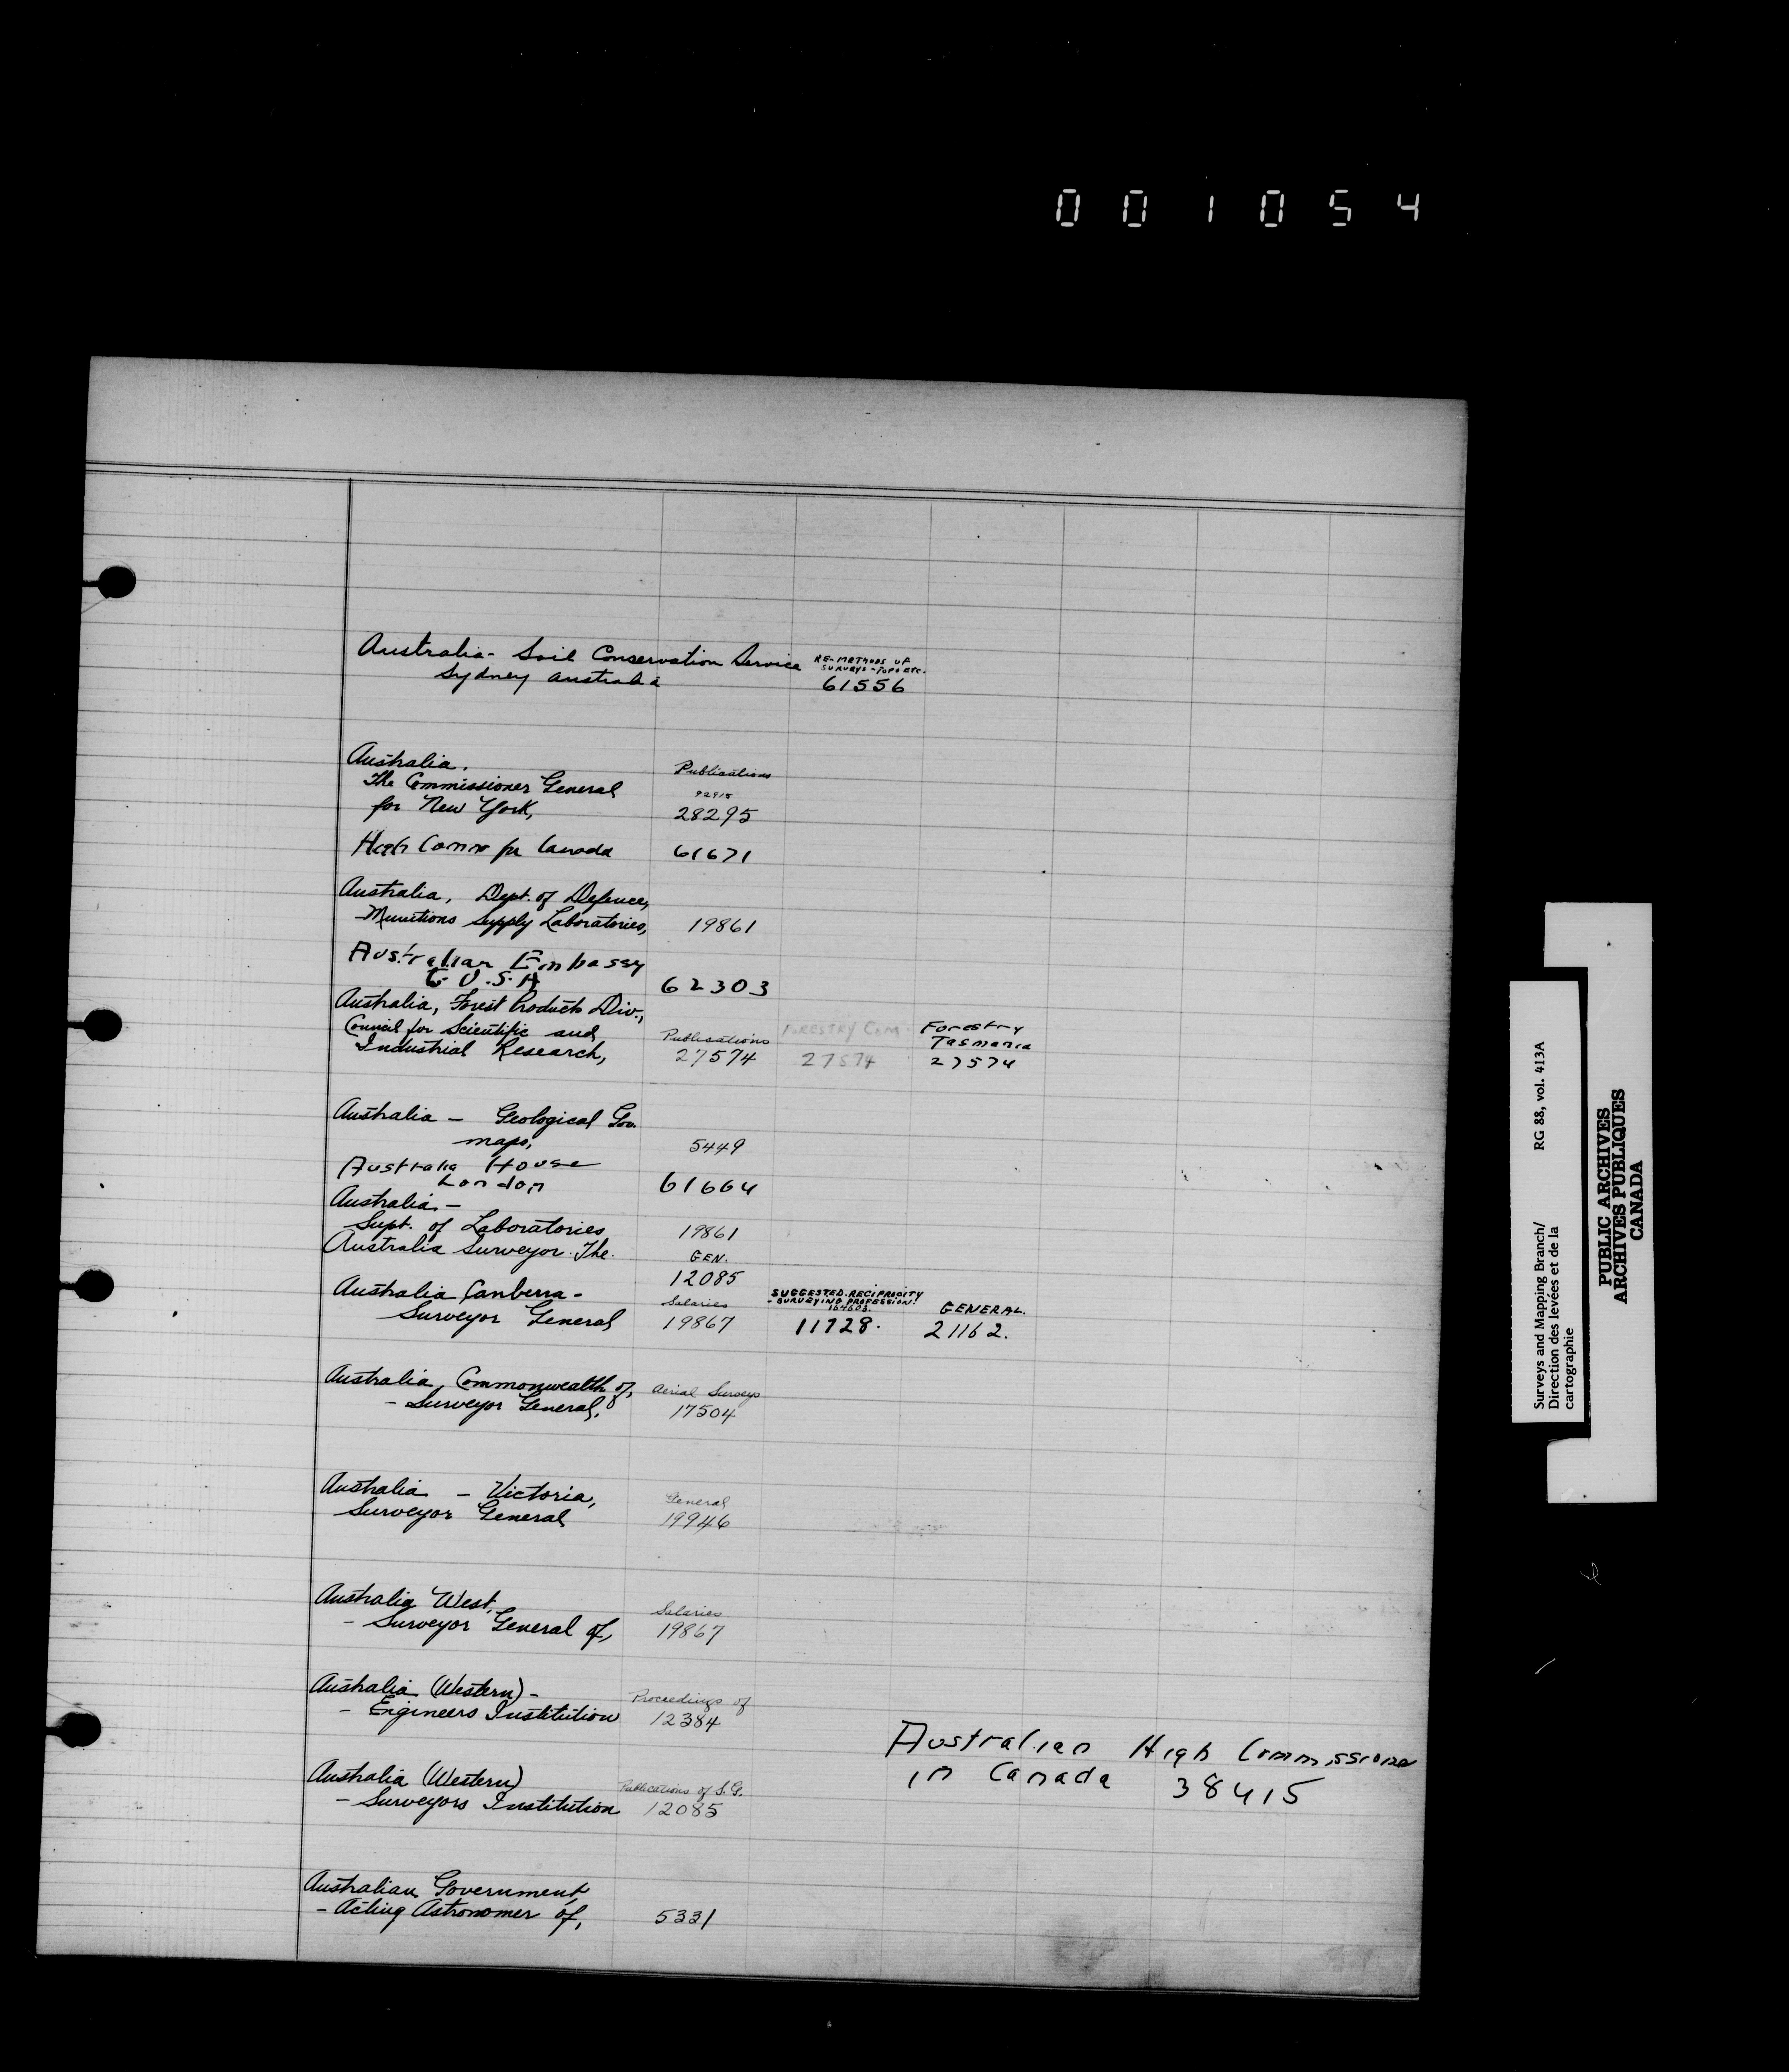 001054
Australia - Soil Conservation Service RE-METHODS OF
SURVEYS - TOPO ETC.
Sydney Australia 61556
Australia.
The Commissioner General Publications
for New York, 28295
High Comm for Canada 61671
Australia, Dept. of Defence,
-Munitions Supply Laboratories, 19861
Australian Embassy
U.S.A 62303
Australia, Forest Products Div.,
Council for Scientific and Publications FORESTRY COM Forestry
Tasmania
Industrial Research, 27574 27574 27574
Australia - Geological Gov.
maps, 5449
Australia House
London 61664
Australia -
Supt. of Laboratories 19861
Australia Surveyor. The. GEN.
12085
Australia Canberra - Salaries SUGGESTED RECIPROCITY
- SURVEYING PROFESSION. GENERAL.
Surveyor General 19867 11728. 21162.
Australia, Commonwealth of, Aerial Surveys
- Surveyor General, 17504
Australia - Victoria, General
Surveyor General 19946
Australia West, Salaries
- Surveyor General of, 19867
Australia (Western) - Proceedings of
- Engineers Institution 12384
Australian High Commissioner
in Canada 38415
Australia (Western) Publications of S.G.
- Surveyors Institution 12085
Australian Government,
- Acting Astronomer of, 5331
Surveys and Mapping Branch/ RG 88, vol. 413A
Direction des levées et de la
cartographie
PUBLIC ARCHIVES
ARCHIVES PUBLIQUES
CANADA